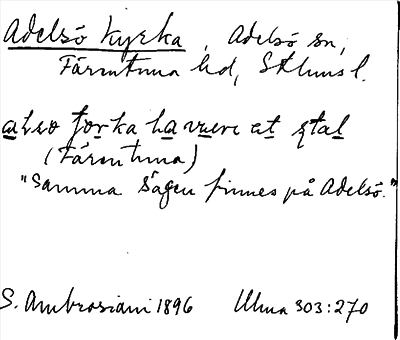 Adelsö kyrka, Adelsö sn,
Färentuna hd, Sthlms l.
(Färentuna)
"Samma sägen finnes på Adelsö."
S. Ambrosiani 1896 Ulma 303:270